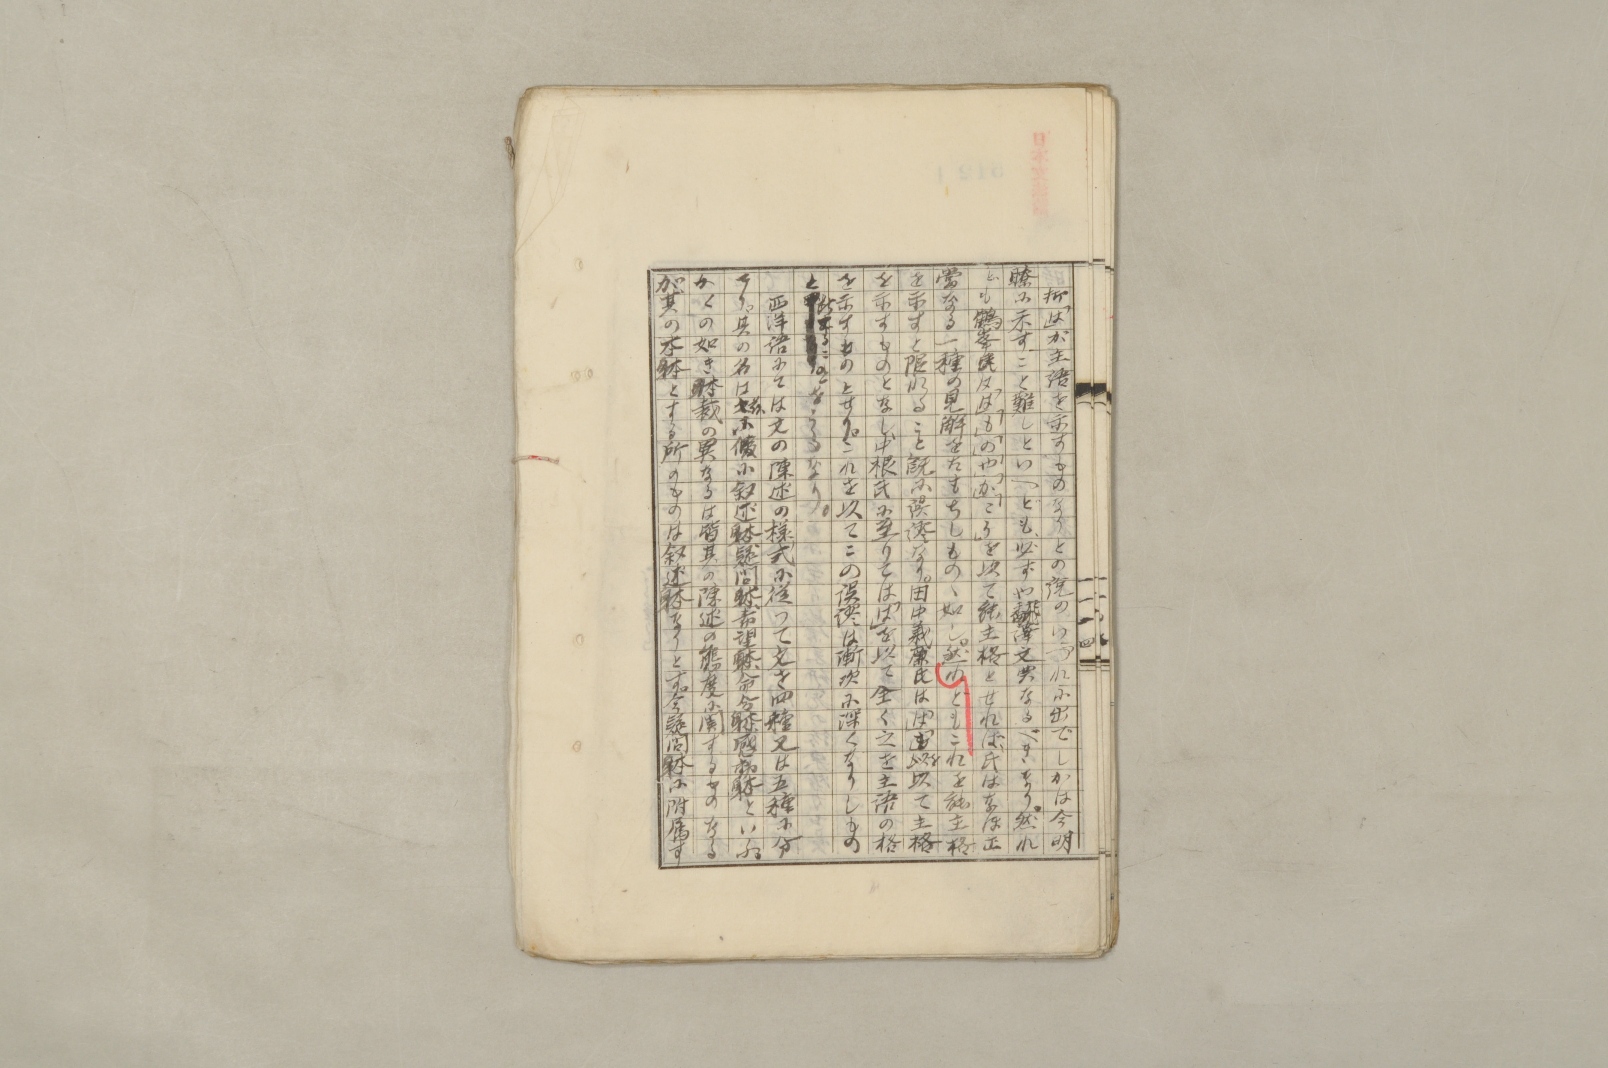 抑「は」が主語を示すものなりとの説のいづれに出でしかは今明
瞭に示すこと難しといへども、必ずや飜譯文典なるべきなり。然れ
ども鶴峯氏は「は」「も」「の」「や」「が」「こそ」を以て能主格とせれば、氏はなほ正
當なる一種の見解をたもちしものゝ如し。然れどもこれを能主格
を示すと限れること既に誤謬なり。田中義廉氏は「は」「が」を以て主格
を示すものとなし、中根氏に至りては「は」を以て全く之を主語の格
を示すものとせり。これを以てこの誤謬は漸次に深くなりしもの
と
なるなり。
西洋語にては文の陳述の様式に従つて文を四種又は五種に分
てり。其の名は 叙述躰疑問躰希望躰命令躰感動躰といふ。
かくの如き躰裁の異なるは皆其の陳述の態度に関するものなる
が、其の本躰とする所のものは叙述躰なりとす。今疑問躰に附属す